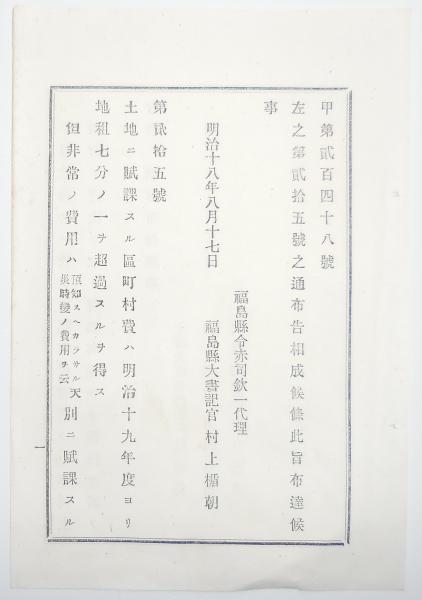 甲第貳百四十八號
左之第貳拾五號之通布告相成候條此旨布達候
事
福島縣令赤司欽一代理
明治十八年八月十七日 福島縣大書記官村上楯朝
第貳拾五號
土地ニ賦課スル區町村費ハ明治十九年度ヨリ
地租七分ノ一ヲ超過スルヲ得ス
但非常ノ費用ハ豫知スヘカラサル天災時變ノ費用ヲ云別ニ賦課スル
一